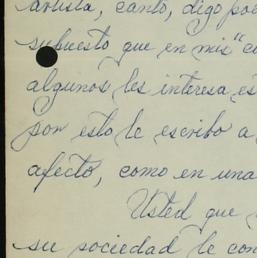 artista, canto, digo poe
supuesto que en mis "cu
algunos les interesa es
por esto le escribo a
afecto, como en una
Usted que
su sociedad le con